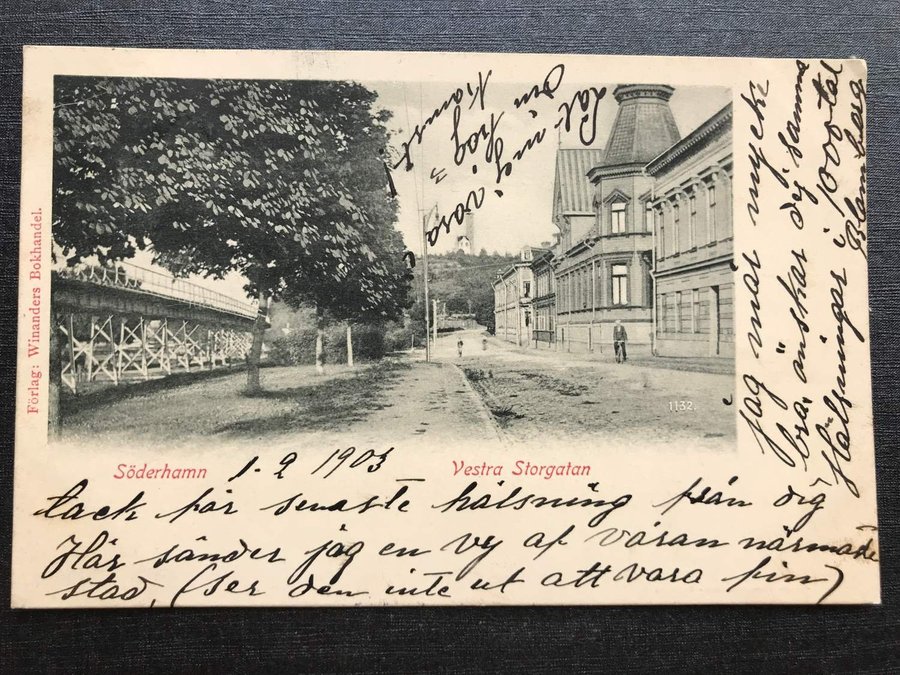 Förlag: Winanders Bokhandel.
1132.
Söderhamn
1-2 1903
Vestra Storgatan
tack för senaste hälsning från dig
Här sänder jag en vy af våran närmade
stad, (ser den inte ut att vara fin)
Jag mår mycke
bra, önskar dig samma
Hälsningar i 1000 tal
Låt mig vara